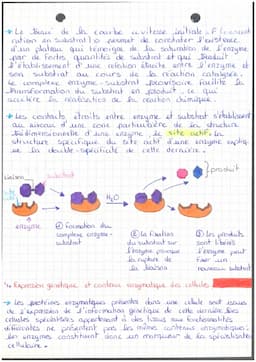 → Le tracé de la courbe « vitesse initiale = f (concent
ration en substrat) » permet de constater l'existence
d'un plateau qui témoigne de la saturation de l'enzyme
par de fortes quantités de substrat et qui traduit
l'établissement d'une relation étroite entre l'enzyme et
son substrat au cours de la réaction catalysée.
Le complexe enzyme-substrat provisoire facilite la
transformation du substrat en produit, ce qui
accélère la réalisation de la réaction chimique.
→ Les contacts étroits entre enzyme et substrat s'établissent
au niveau d'une zone particulière de la structure
tridimensionnelle d'une enzyme, le site actif. La
structure spécifique du site actif d'une enzyme expliq-
ue la double spécificité de cette dernière.
liaison
substrat
produit
site actif
H₂O
enzyme
① Formation du complexe enzyme-substrat
② la fixation du substrat sur l'enzyme provoque la rupture de la liaison
③ les produits sont libérés l'enzyme peut fixer un nouveau substrat
↳ Expression génétique et contenu enzymatique des cellules
→ Les protéines enzymatiques présentes dans une cellule sont issues
de l'expression de l'information génétique de cette dernière. Des
cellules spécialisées appartenant à des tissus aux fonctionnalités
différentes ne présentent pas les mêmes contenus enzymatiques:
les enzymes constituent donc un marqueur de la spécialisation
cellulaire.